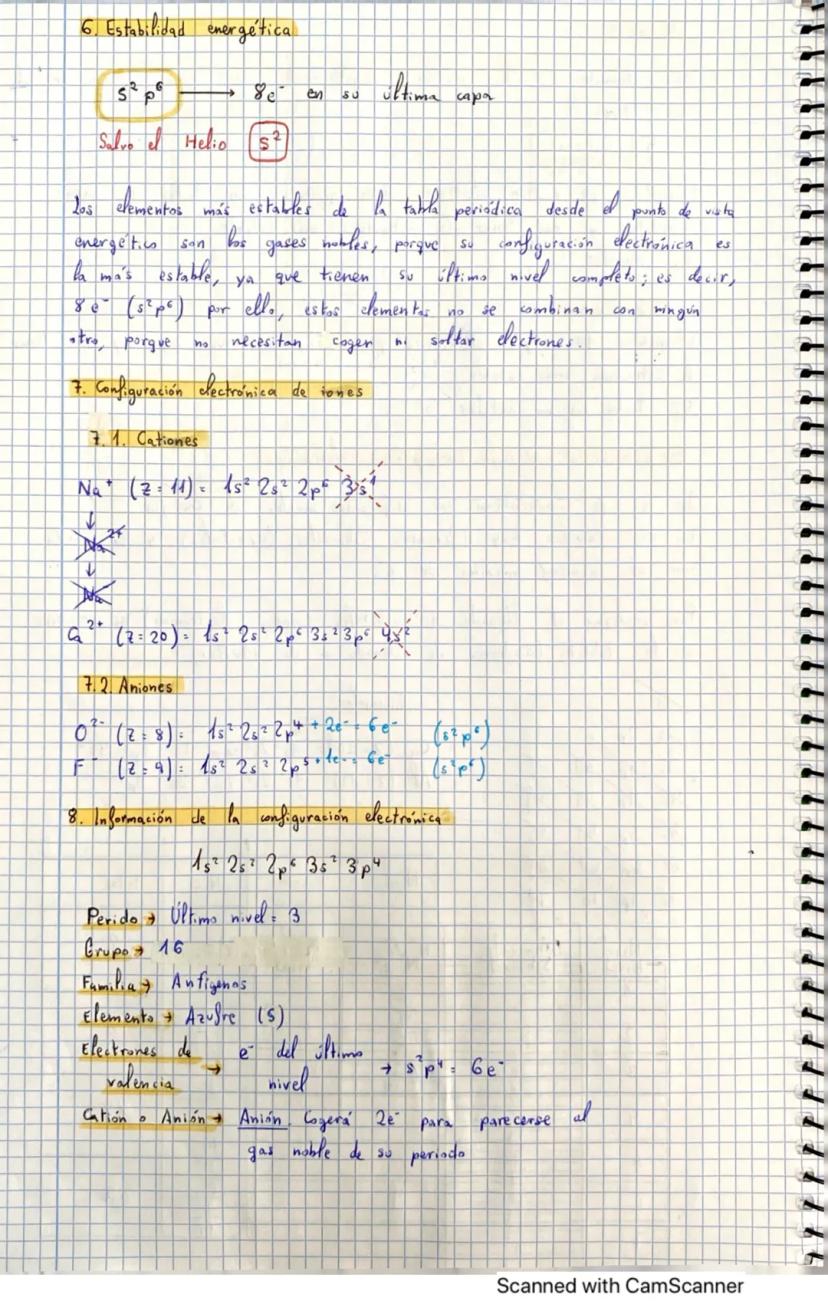 6. Estabilidad energética
s² p⁶ → 8e⁻ en su última capa
Salvo el Helio s²
Los elementos más estables de la tabla periódica desde el punto de vista
energético son los gases nobles, porque su configuración electrónica es
la más estable, ya que tienen su último nivel completo; es decir,
8 e⁻ (s²p⁶) por ello, estos elementos no se combinan con ningún
otro, porque no necesitan coger ni soltar electrones.
7. Configuración electrónica de iones
7.1. Cationes
Na⁺ (Z = 11) = 1s² 2s² 2p⁶ 3s¹
↓
Na²⁺
↓
Na
Ca²⁺ (Z = 20) = 1s² 2s² 2p⁶ 3s² 3p⁶ 4s²
7.2. Aniones
O²⁻ (Z = 8) = 1s² 2s² 2p⁴ + 2e⁻ = 6e⁻ (s²p⁶)
F⁻ (Z = 9) = 1s² 2s² 2p⁵ + 1e⁻ = 6e⁻ (s²p⁶)
8. Información de la configuración electrónica
1s² 2s² 2p⁶ 3s² 3p⁴
Perido → Último nivel = 3
Grupo → 16
Familia → Anfígenos
Elemento → Azufre (S)
Electrones de valencia → e⁻ del último nivel → s²p⁴ = 6e⁻
Catión o Anión → Anión. Cogerá 2e⁻ para parecerse al
gas noble de su periodo
Scanned with CamScanner